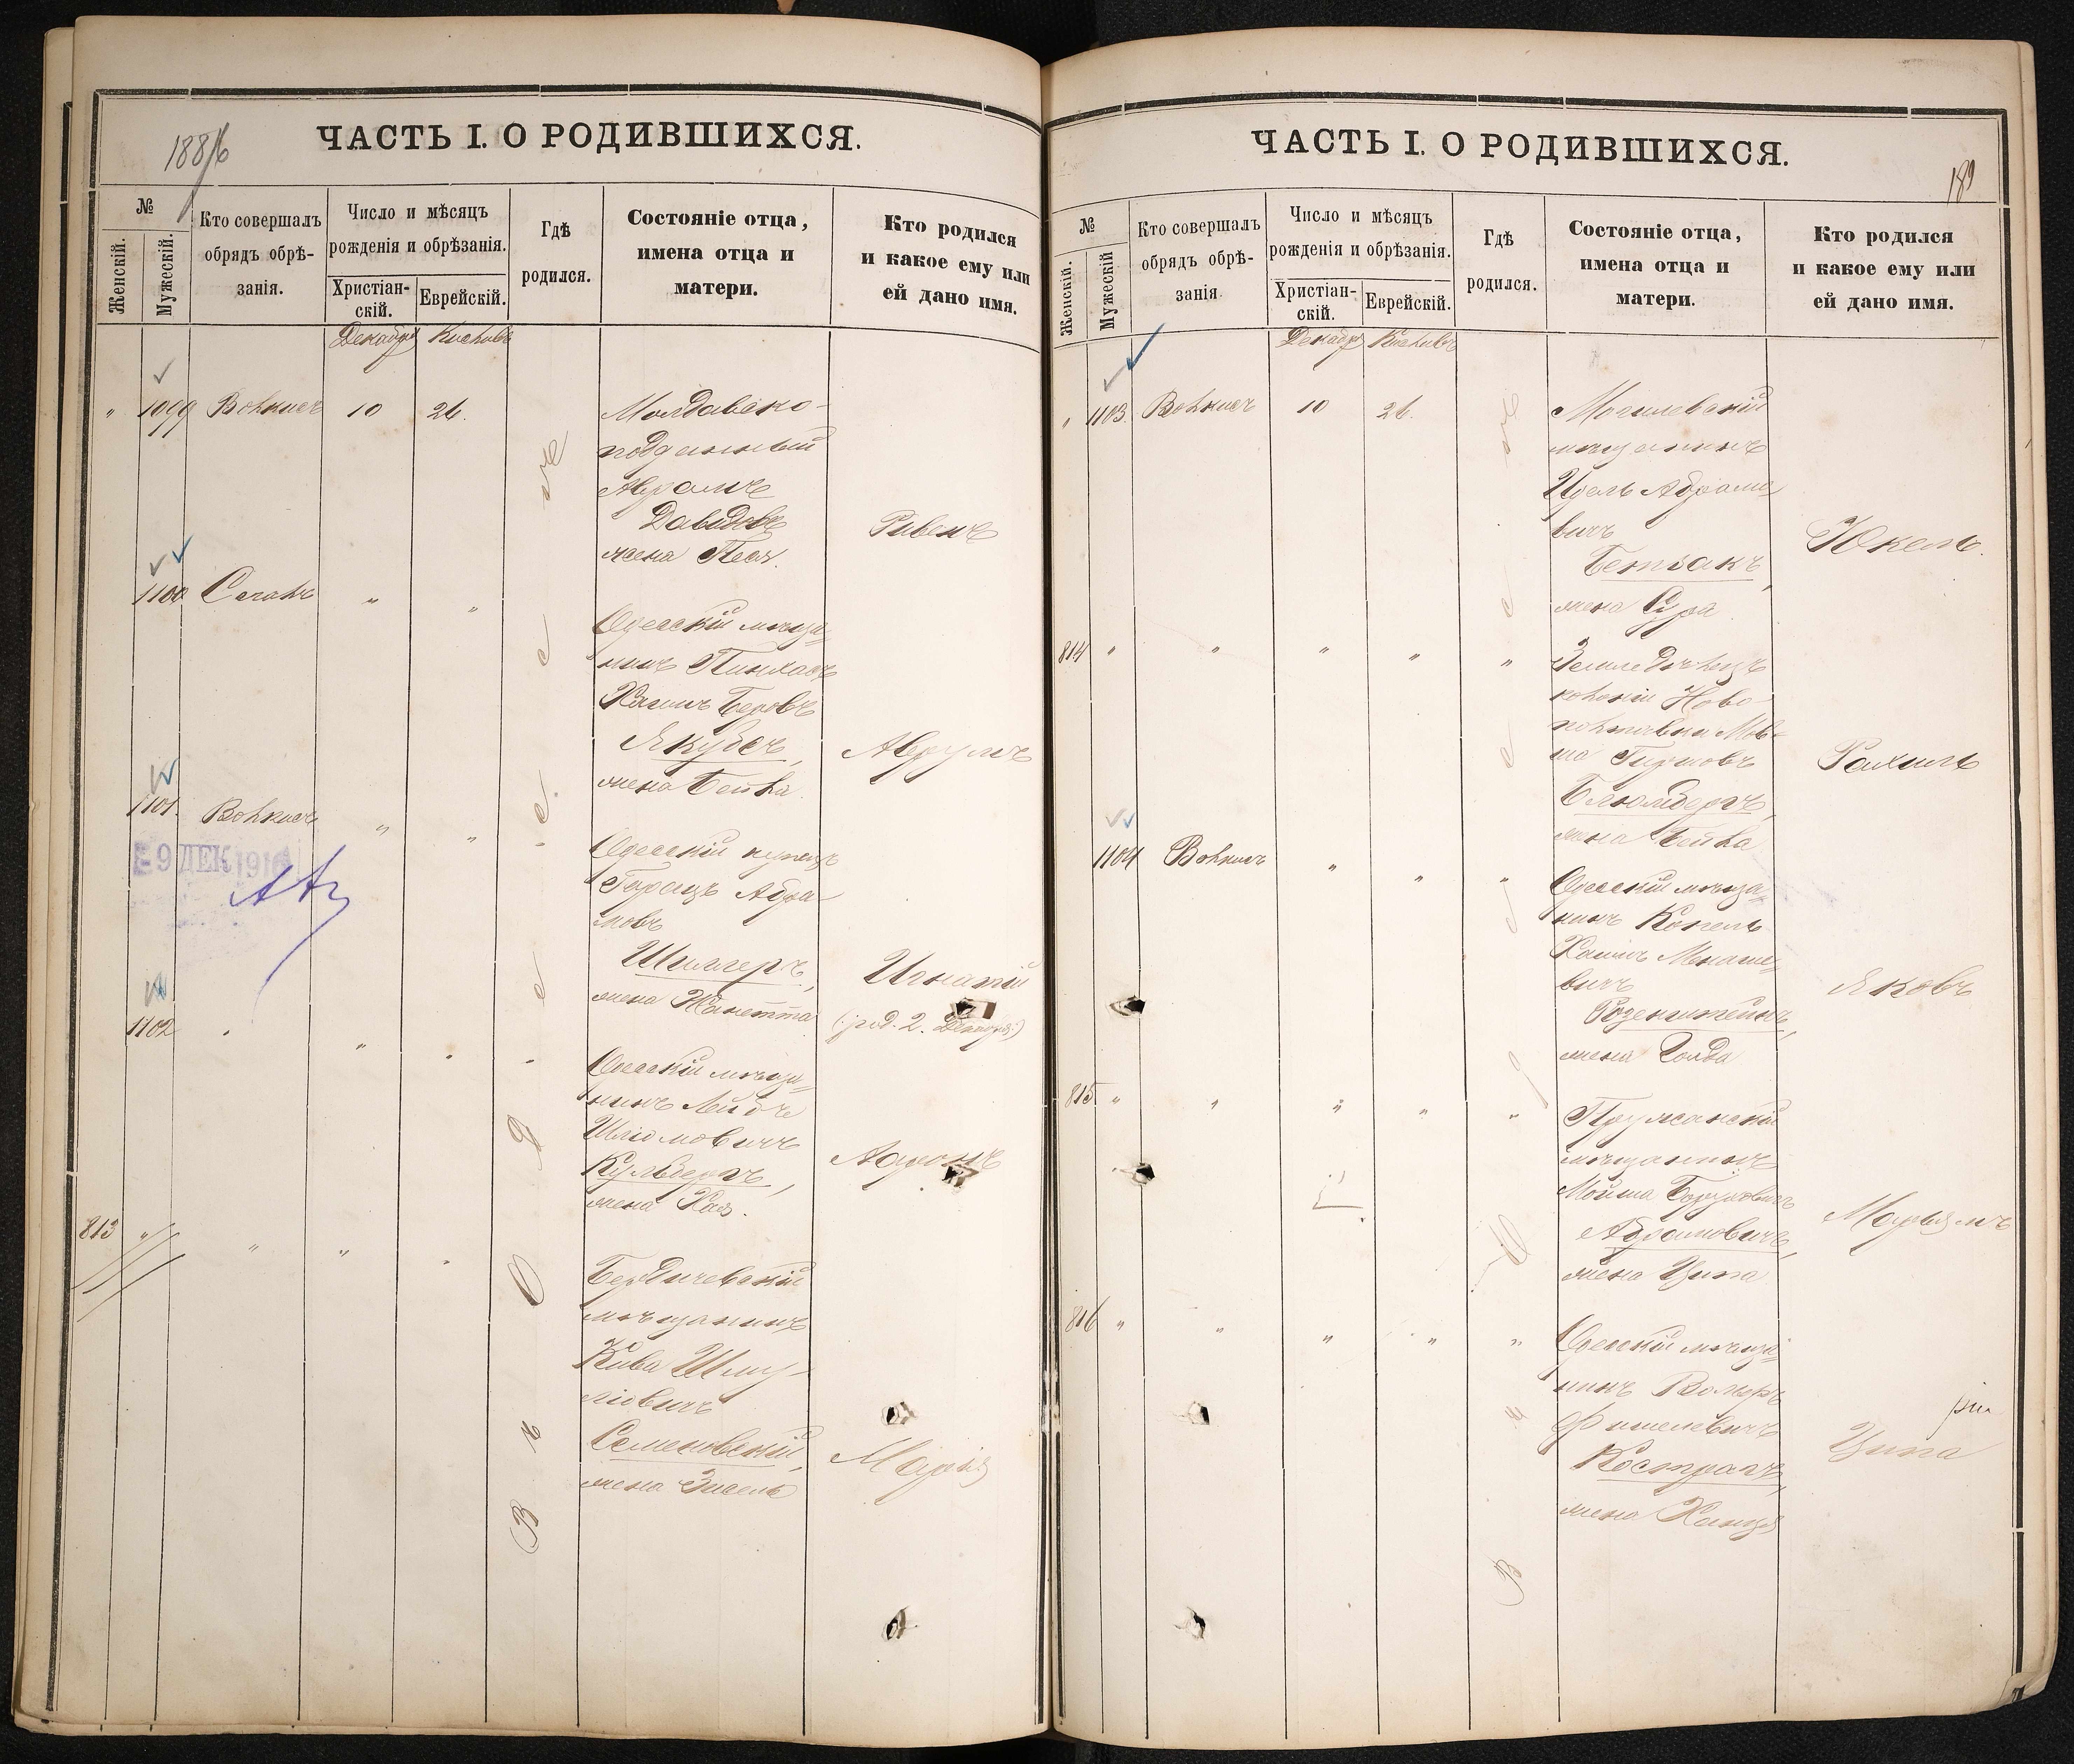 1886
ЧАСТЬ I. О РОДИВШИХСЯ.
№
Женскій.
Мужескій.
Кто совершалъ
обрядъ обрѣ-
занія.
Число и мѣсяцъ
рожденія и обрѣзанія.
Христіан-
скій.
Еврейскій.
Гдѣ
родился.
Состояніе отца,
имена отца и
матери.
Кто родился
и какое ему или
ей дано имя.
Декабрь Кисливъ
" 1099 Волкисъ 10 26.
Молдавско-
подданный
Аврамъ
Давидовъ
жена Песя.
Ривенъ
1100 Сегалъ " "
Одесскій мѣща-
нинъ Пинхасъ
Хаимъ Беровъ
Якубсъ,
жена Бейла
Аврумъ
1101. Волкисъ " "
Одесскій купецъ
Герацъ Абра-
мовъ
Шиллеръ,
жена Жанетта
Игнатій
(: род. 2. Декабря :)
9 ДЕК 1916
1102 " " " "
Одесскій мѣща-
нинъ Лейбъ
Шліомовичъ
Кульбергъ,
жена Хая.
Ааронъ
813 " " " "
Бердичевскій
мѣщанинъ
Кива Шму-
ліовичъ
Семеновскій,
жена Зисель
Марія
Въ Одессѣ
ЧАСТЬ I. О РОДИВШИХСЯ.
189
№
Женскій.
Мужескій
Кто совершалъ
обрядъ обрѣ-
занія.
Число и мѣсяцъ
рожденія и обрѣзанія.
Христіан-
скій.
Еврейскій.
Гдѣ
родился.
Состояніе отца,
имена отца и
матери.
Кто родился
и какое ему или
ей дано имя.
Декабрь Кисливъ
" 1103. Волкисъ 10 26.
Могилевскій
мѣщанинъ
Идель Абрамо-
вичъ
Бетзакъ,
жена Сура
Юкель.
814 " " " " "
Земледѣлецъ
колоніи Ново-
полтавки Мов-
ша Гиршовъ
Блюмбергъ,
жена Бейла
Рахиль
1104 Волкисъ " " "
Одесскій мѣща-
нинъ Копель
Хаимъ Менаше-
вичъ
Розенштейнъ,
жена Голда
Яковъ
815 " " " " "
Пружанскій
мѣщанинъ
Мойша Борухович
Абрамовичъ,
жена Ципа
Марьямъ
816 " " " " "
Одесскій мѣща-
нинъ Вольфъ
Фишелевичъ
Костракъ,
жена Ханця
Ципа
Въ Одессѣ